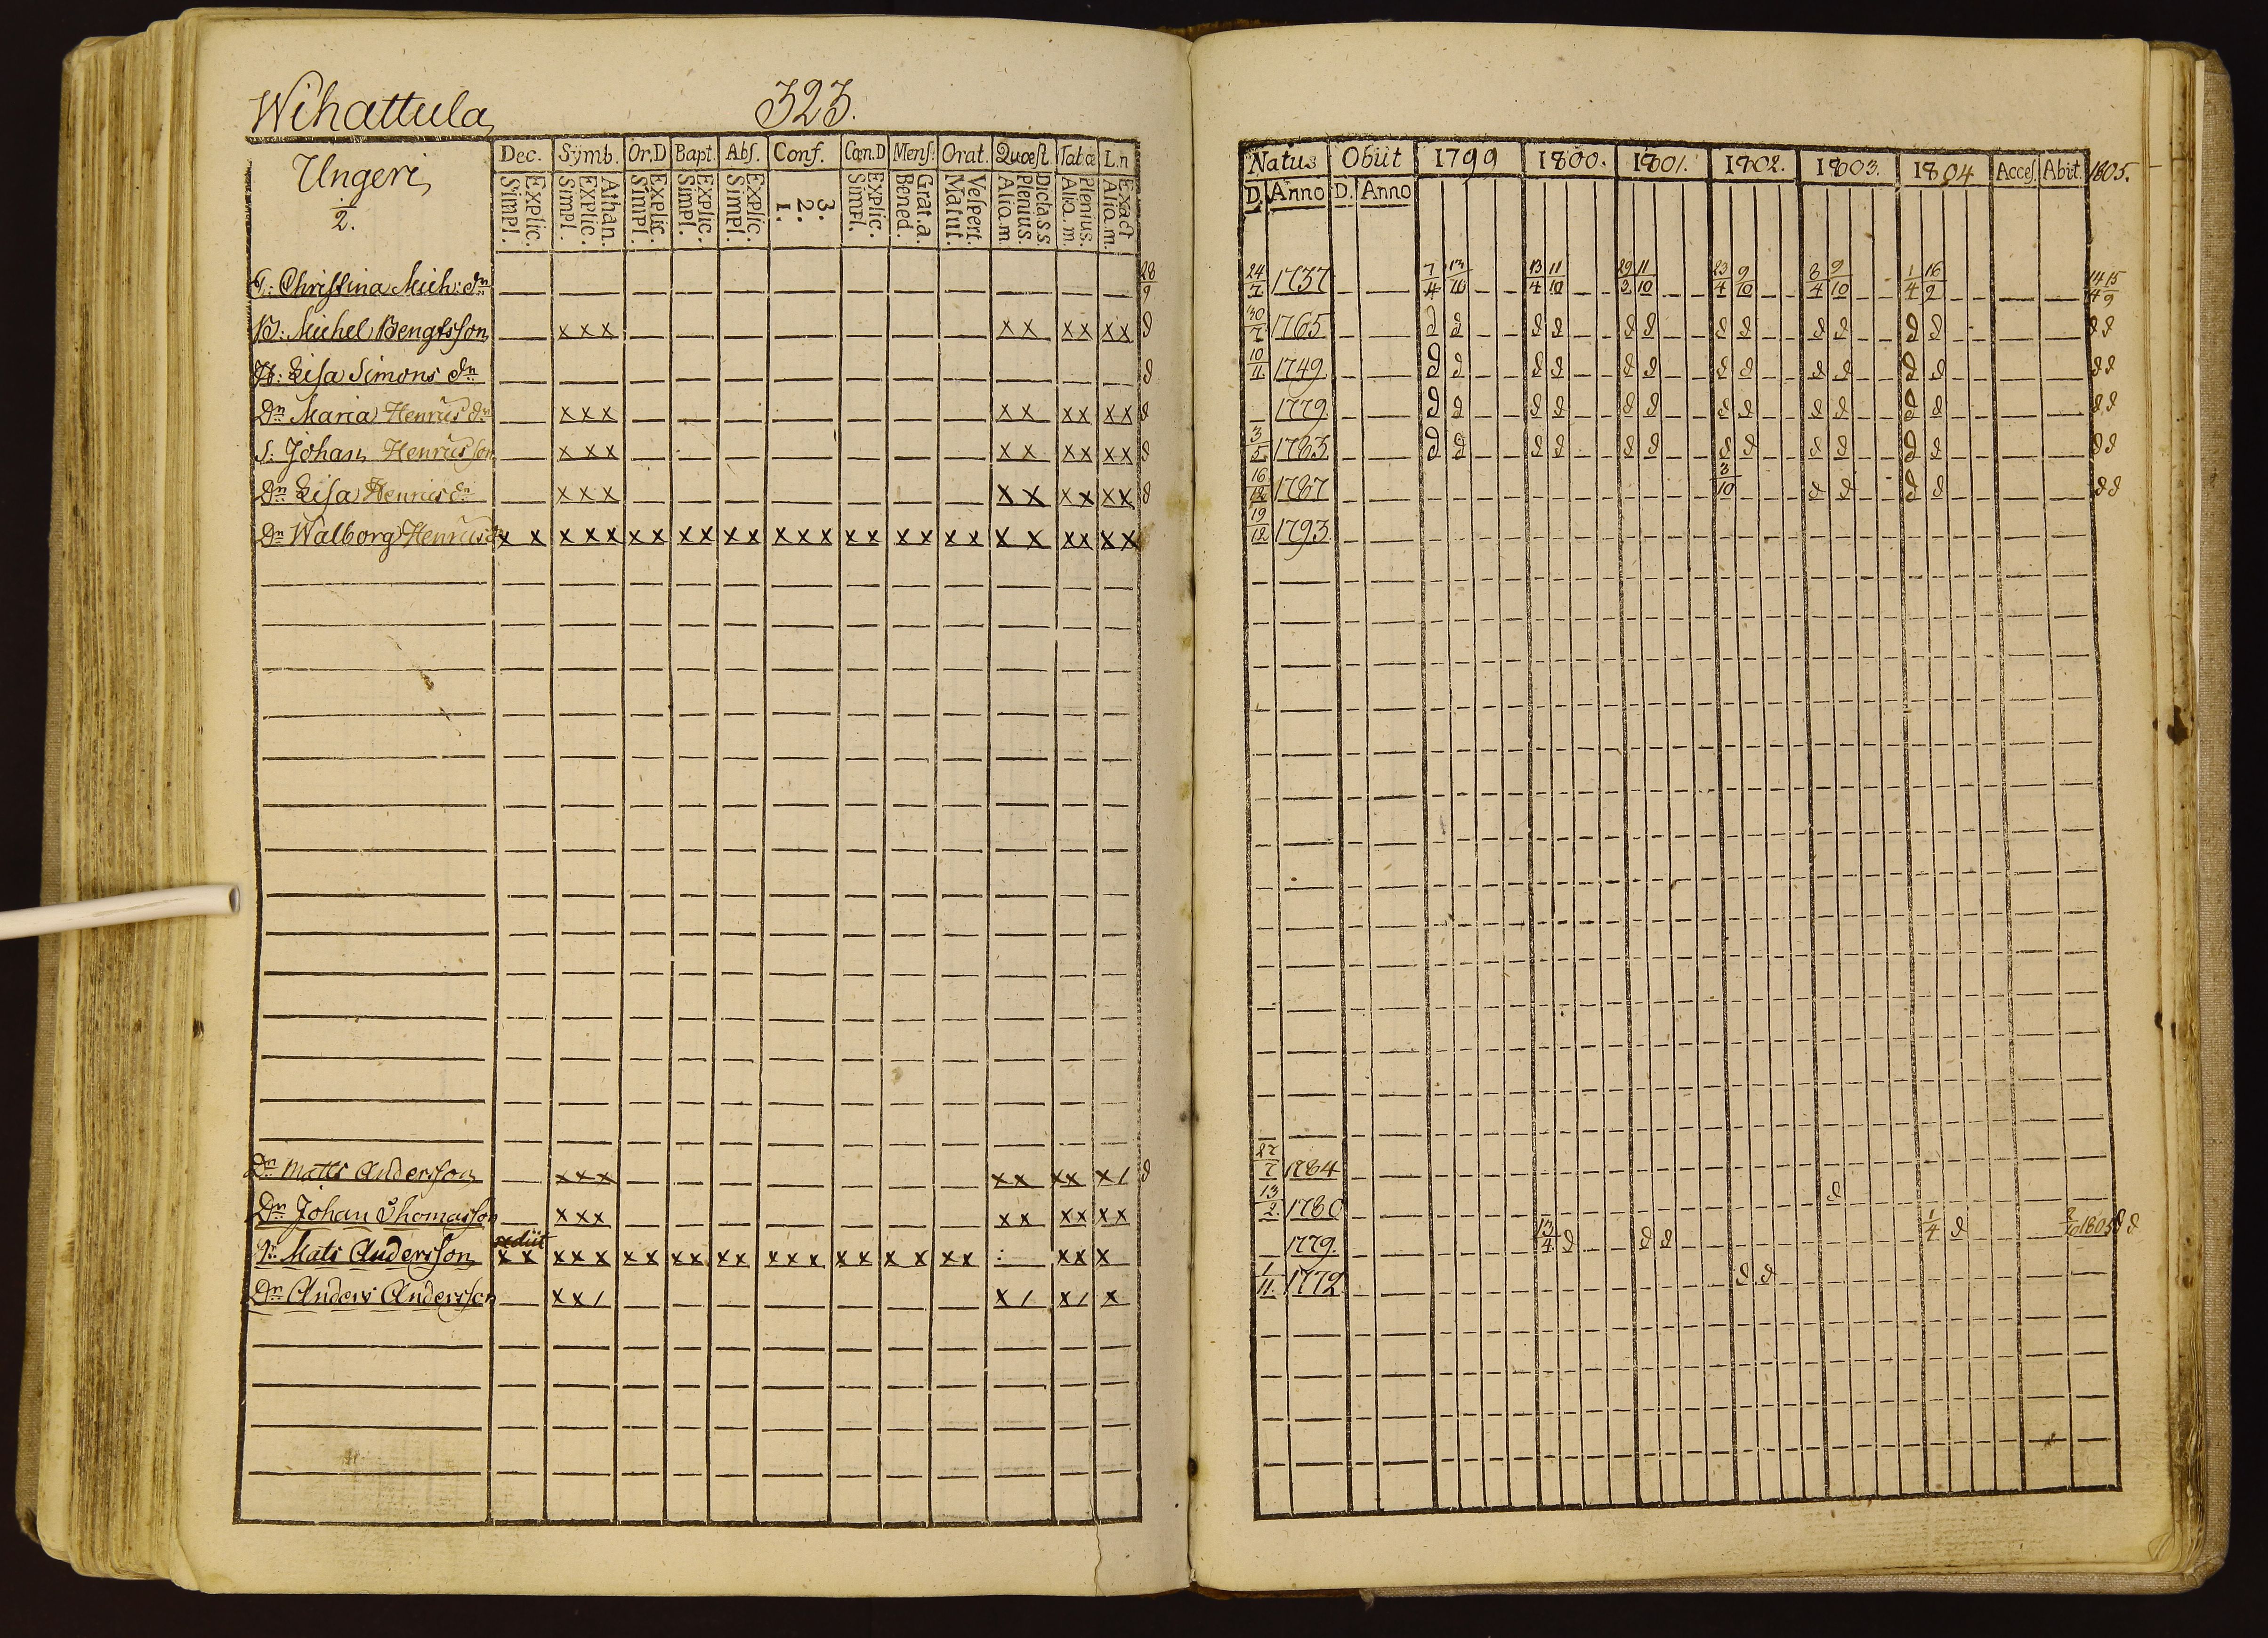 Wihattula 323.
Ungeri
2.
Dec. Symb. Or.D Bapt. Abs. Conf. Cœn.D Mens. Orat. Quœst. Tab.œ L.n
Explic. Simpl. Athan. Explic. Simpl. Explic. Simpl. Explic. Simpl. Explic. Simpl. 3. 2. 1. Explic. Simpl. Grat.a. Bened. Vespert. Matut. Dicta.s.s. Plenius. Aliq.m Plenius. Aliq.m. Exact Aliq.m.
Christina Mich: dr 28/9
B: Michel Bengtsson x x x x x x x x x
H: Lisa Simons dr
Dr Maria Henrics dr x x x x x x x x x
S: Johan Henricsson x x x x x x x x x
Dr Lisa Henrics dr x x x x x x x x x
Dr Walborg Henrics x x x x x x x x x x x x x x x x x x x x x x x x x x
Dn Matts Andersson x x x x x x x x /
Dn Johan Thomasson x x x x x x x x x
rediit
Mats Andersson x x x x x x x x x x x x x x x x x x x x x : x x x
Dn Anders Andersson x x / x / x / x
Natus Obiit 1799 1800. 1801. 1802. 1803. 1804 Acces. Abiit. 1805.
D. Anno D. Anno
24/7 1737 7/4 13/10 13/4 11/10 29/3 11/10 23/4 9/10 8/4 9/10 1/4 16/9 14/4 15/9
30/7 1765
10/11 1749
1779
3/5 1783
16/12 1787 3/10
19/12 1793
27/7 1784
13/2 1780
1779. 13/4 1/4 1805
1/11 1772